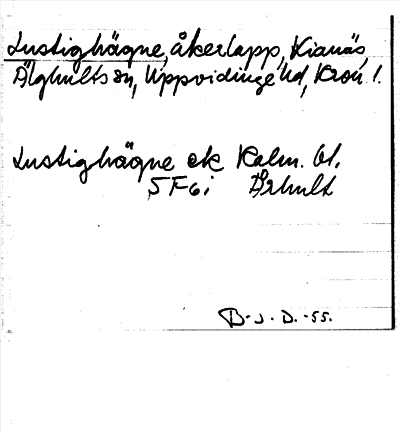 Lustighägne, åkerlapp, Kianäs,
Älghults sn, Uppvidinge hd, Kron. l.
Lustighägne ek Kalm. bl.
5 F 6 i Älghult
B. J. D. -55.